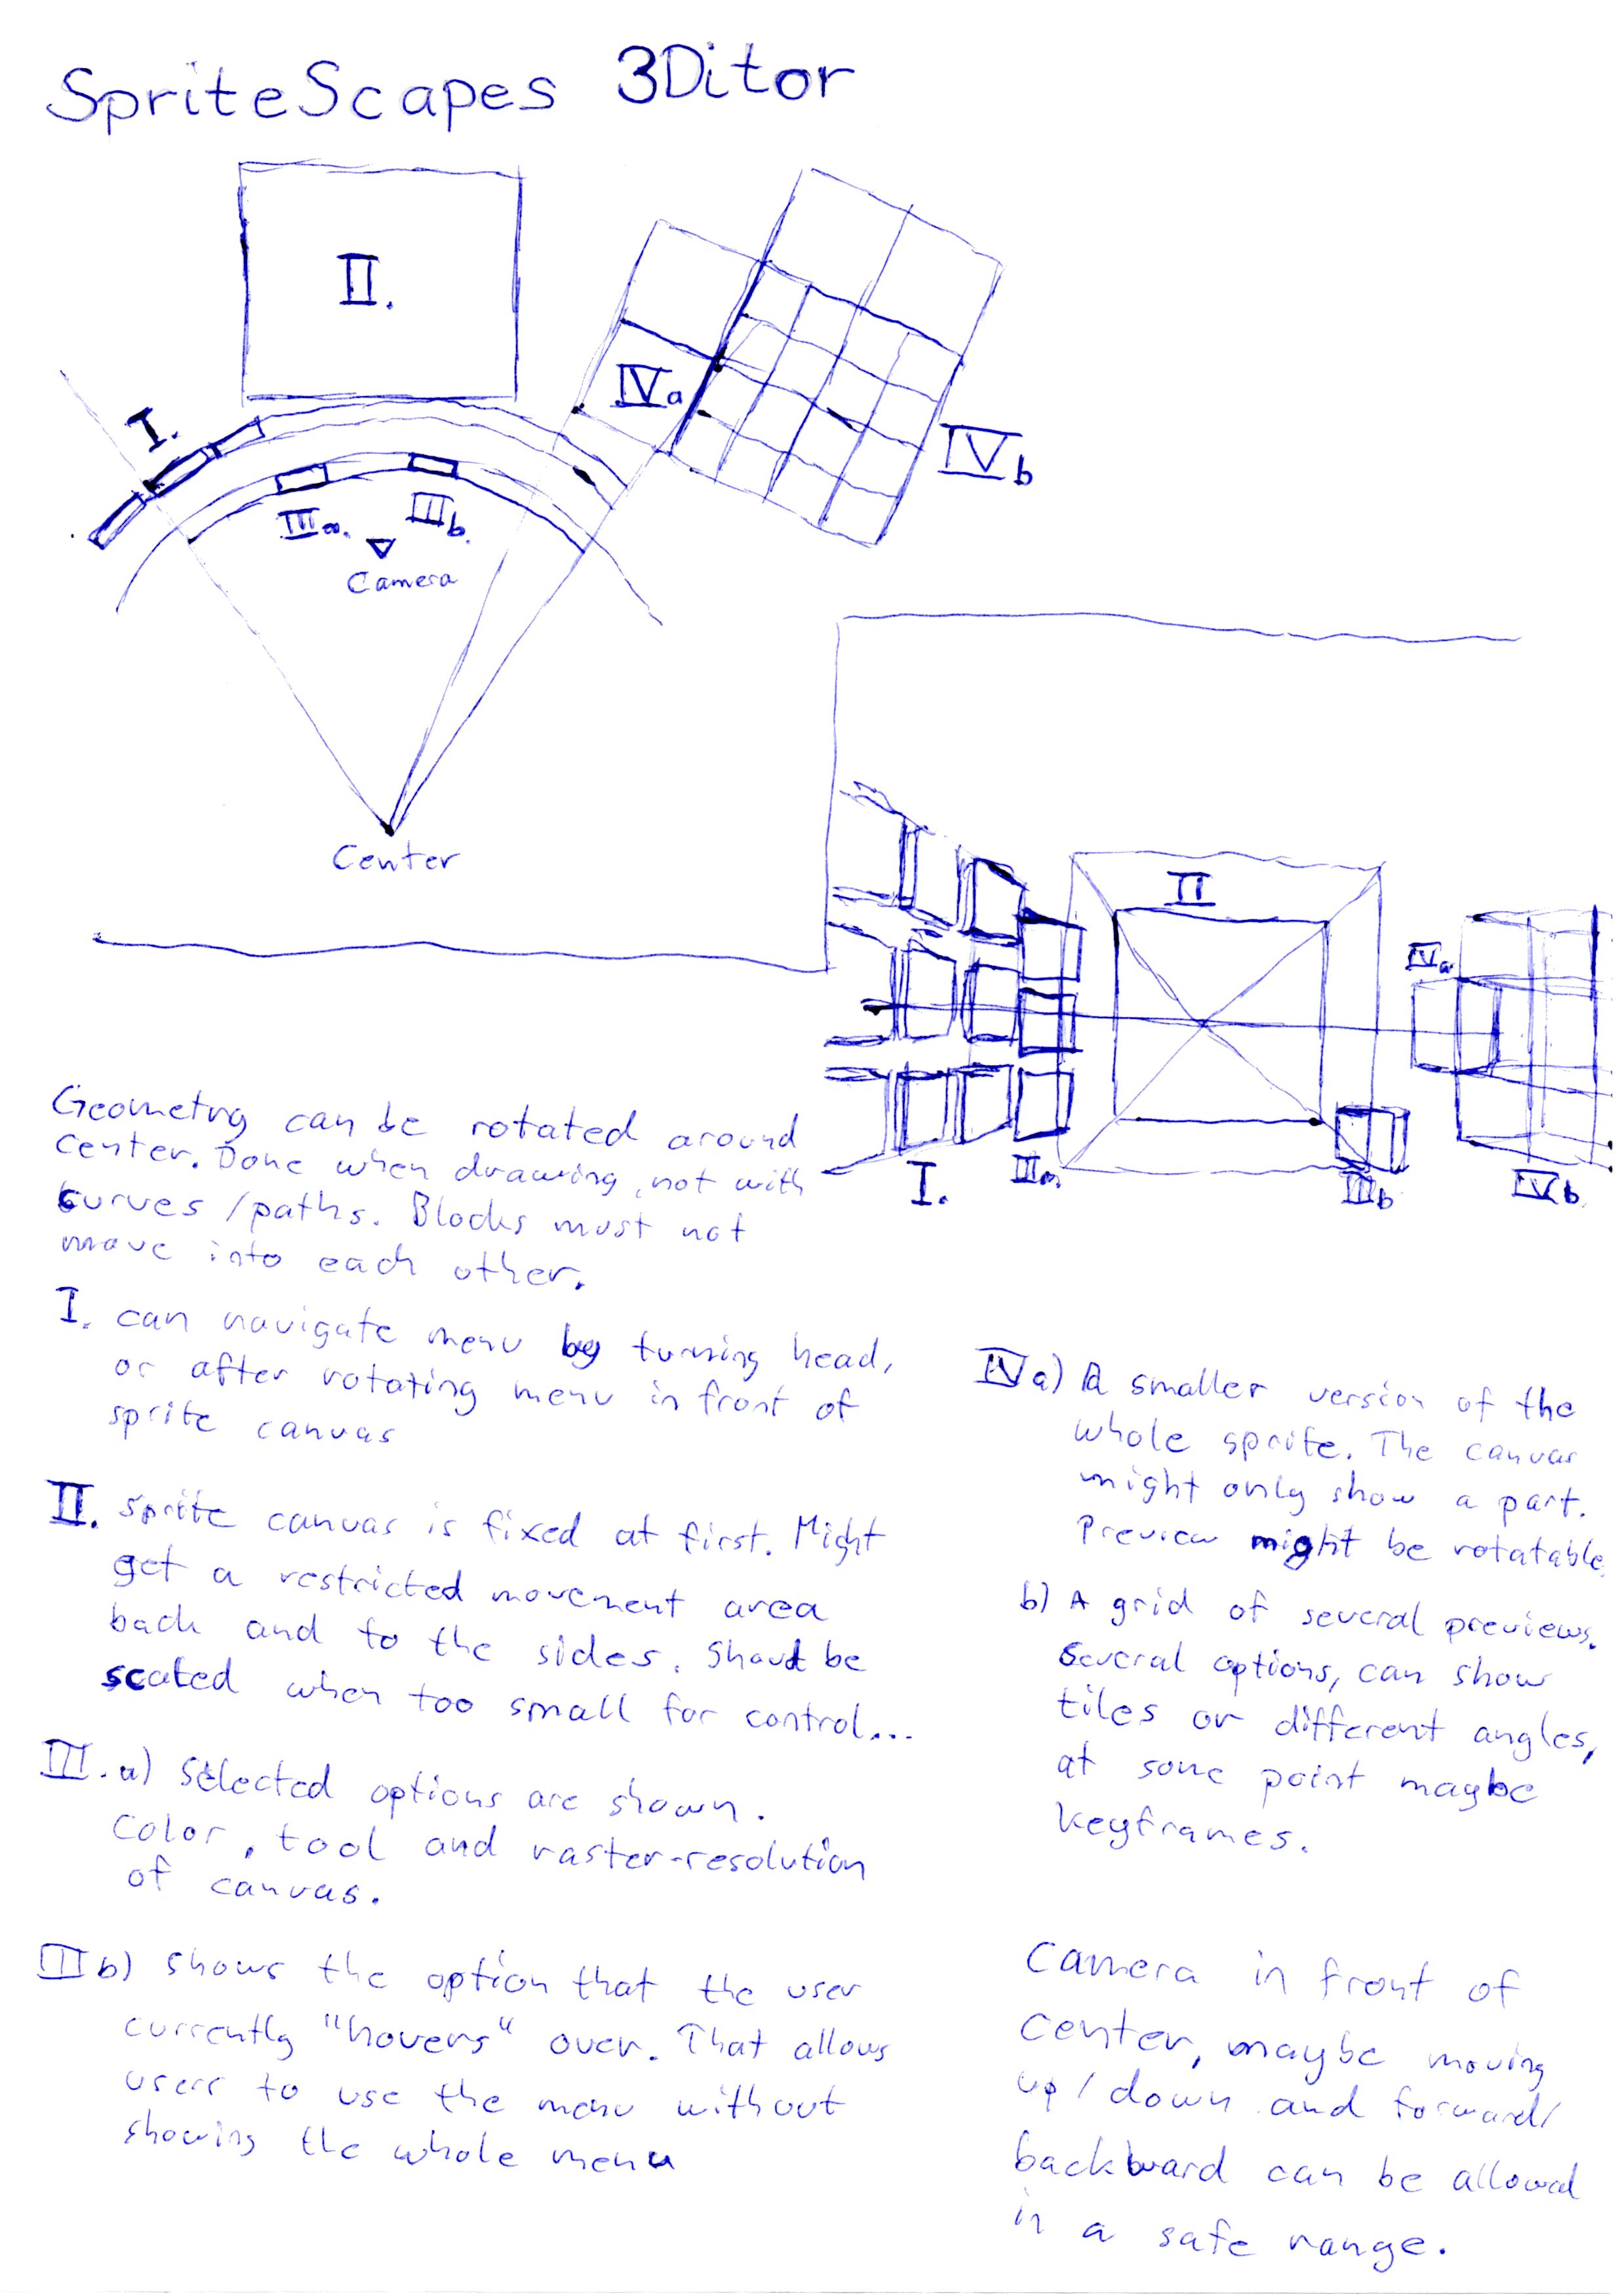 SpriteScapes 3Ditor
II.
I.
IVa
IVb
IIIa.
IIIb.
Camera
Center
II
IVa
I.
IIIa.
IIIb
IVb
Geometry can be rotated around
Center. Done when drawing, not with
curves/paths. Blocks must not
move into each other.
I. can navigate menu by turning head,
or after rotating menu in front of
sprite canvas
II. Sprite canvas is fixed at first. Might
get a restricted movement area
back and to the sides. Should be
scaled when too small for control...
III. a) Selected options are shown.
Color, tool and raster-resolution
of canvas.
III b) shows the option that the user
currently "hovers" over. That allows
users to use the menu without
showing the whole menu
IV a) A smaller version of the
whole sprite. The canvas
might only show a part.
Preview might be rotatable.
b) A grid of several previews.
Several options, can show
tiles or different angles,
at some point maybe
keyframes.
Camera in front of
center, maybe moving
up/down and forward/
backward can be allowed
in a safe range.